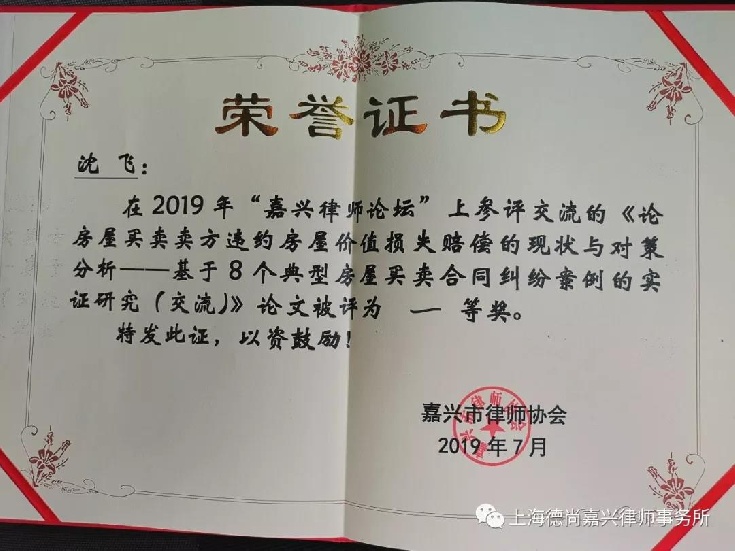 荣誉证书
沈 飞：
在2019年“嘉兴律师论坛”上参评交流的《论
房屋买卖卖方违约房屋价值损失赔偿的现状与对策
分析——基于8个典型房屋买卖合同纠纷案例的实
证研究（交流）》论文被评为 一 等奖。
特发此证，以资鼓励！
嘉兴市律师协会
2019年7月
嘉兴市律师协会
上海德尚嘉兴律师事务所